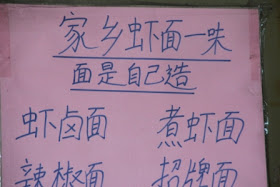 家乡虾面一味
面是自己造
虾卤面 煮虾面
辣椒面 招牌面